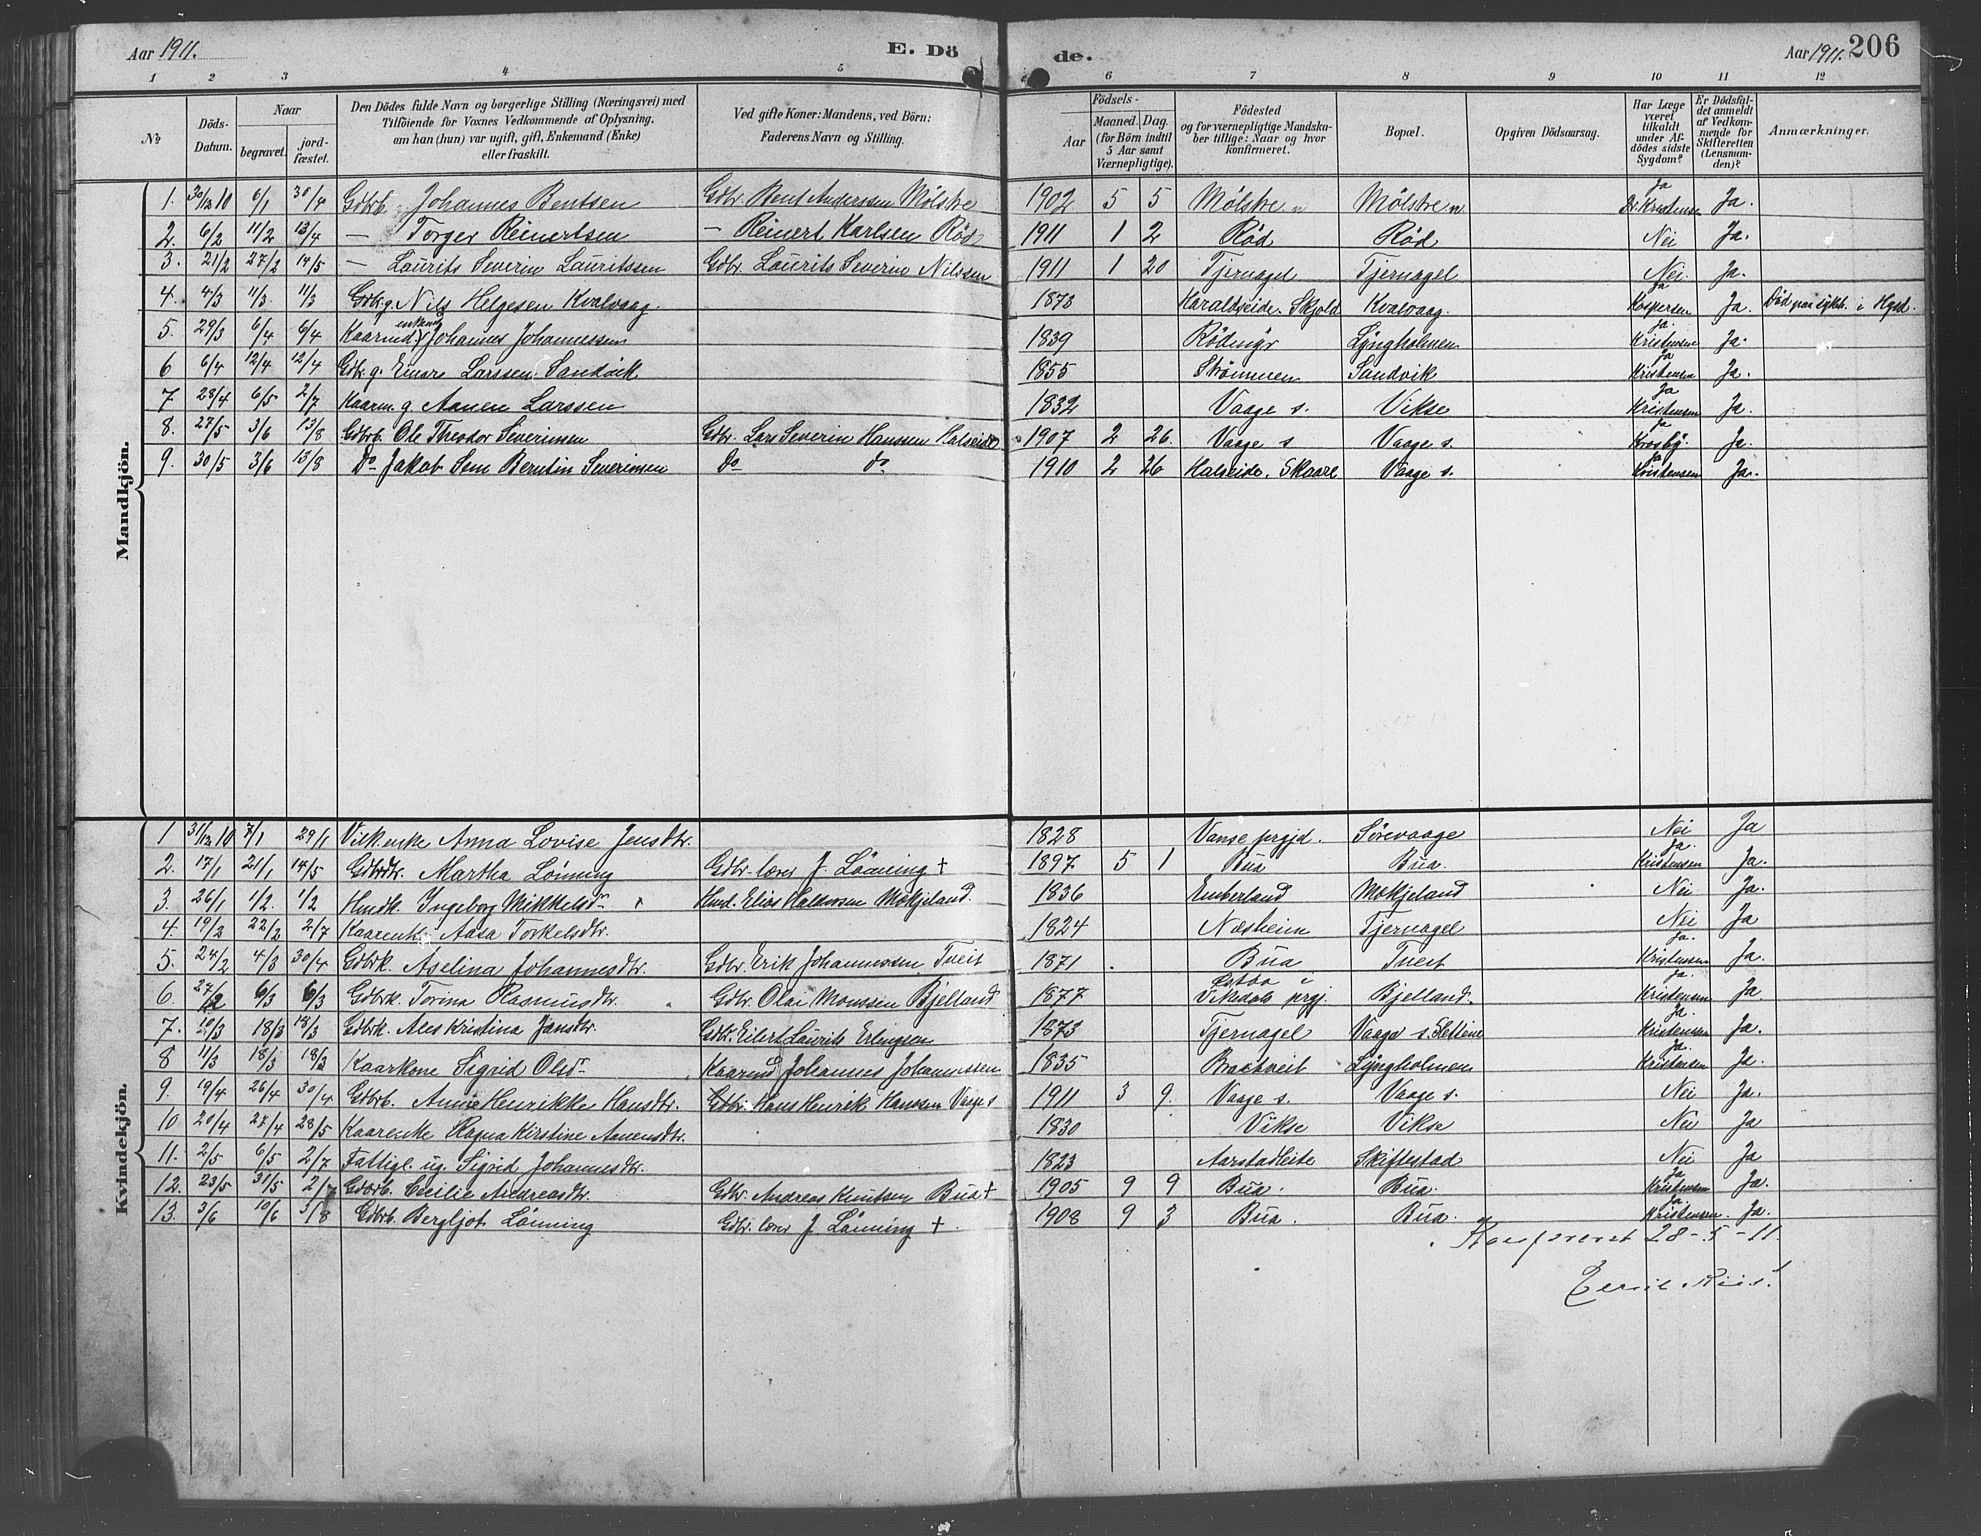 Aar 1911. E. Dö de. Aar 1911. 206
1 2 3 4 5 6 7 8 9 10 11 12
No
Döds-Datum.
Naar
begravet.
jord-fæstet.
Den Dödes fulde Navn og borgerlige Stilling (Næringsvei) med
Tilföiende for Voxnes Vedkommende af Oplysning.
om han (hun) var ugift, gift, Enkemand (Enke)
eller fraskilt.
Ved gifte Koner: Mandens, ved Börn:
Faderens Navn og Stilling.
Födsels-
Aar
Maaned. Dag.
(for Börn indtil
5 Aar samt
Værnepligtige).
Födested
og for værnepligtige Mandska-
ber tillige: Naar og hvor
konfirmeret.
Bopæl.
Opgiven Dödsaarsag.
Har Læge
været
tilkaldt
under Af-
dödes sidste
Sygdom?
Er Dödsfal-
det anmeldt
af Vedkom-
mende for
Skifteretten
(Lensman-
den)?
Anmærkninger.
Mandkjön.
1. 30/12 10 6/1 30/4 Gdbrb. Johannes Bentsen Gdbr. Bent Anderssen Mølstre 1902 5 5 Mølstre n Mølstre n. Ja Dr. Kristensen Ja.
2. 6/2 11/2 13/4 — Torger Reinertsen — Reinert Karlsen Rød 1911 1 2 Rød Rød Nei Ja.
3. 21/2 27/2 14/5 — Laurits Severin Lauritssen Gdbr. Laurits Severin Nilssen 1911 1 20 Tjernagel Tjernagel Nei Ja.
4. 4/3 11/3 11/3 Gdbr. g. Nils Helgesen Kvalvaag 1873 Haraldseide. Skjold Kvalvaag. Ja Kaspersen Ja. Død paa sykeh. i Hgsd.
5. 29/3 6/4 6/4 Kaarmd. enkem. Johannes Johannessen 1839 Rödingr Lyngholmen Ja. Kristensen Ja.
6 6/4 12/4 12/4 Gdbr. g. Einar Larssen Sandvik 1855 Strömmen Sandvik Ja Kristensen Ja.
7 28/4 6/5 2/7 Kaarm. g. Aanen Larssen 1832 Vaage s. Vikse Ja Kristensen Ja.
8. 27/5 3/6 13/8 Gdbrb. Ole Theodor Severinsen Gdbr. Lars Severin Hanssen Halseide 1907 2 26 Vaage s Vaage s. Ja Krosby. Ja.
9. 30/5 3/6 13/8 Do Jakob Sem Berntin Severinsen Do do 1910 2 26 Halseide. Skaare Vaage s. Ja Kristensen Ja.
Kvindekjön.
1 31/12 10 7/1 29/1 Vilk. enke Anna Lovise Jensdtr. 1828 Vanse prgjd. Sörevaage Nei Ja
2. 17/1 21/1 14/5 Gdbrdtr. Martha Lönning Gdbr. lærer J. Lönning † 1897 5 1 Bua Bua. Ja. Kristensen Ja.
3. 26/1 1/2 1/2 Hmdk. Ingeborg Mikkelsdr Hmd. Elias Halvorsen Mökjeland. 1836 Emberland Mökjeland Nei Ja.
4. 19/2 22/2 2/7 Kaarenke Aasa Torkelsdtr. 1824 Næsheim Tjernagel Nei Ja
5. 24/2 4/3 30/4 Gdbrk. Aselina Johannesdtr. Gdbr. Erik Johannessen Tveit 1871 Bua Tveit Ja. Kristensen Ja.
6. 27/2 6/3 6/3 Gdbrk. Torina Rasmusdtr. Gdbr. Olai Monssen Bjelland 1877 Østbø i Vikedals prgj. Bjelland. Ja. Kristensen Ja
7. 10/3 18/3 18/3 Gdbrk. Ales Kristina Jansdtr. Gdbr. Eilert Laurits Erlingsen 1873 Tjernagel Vaage s. Slettene Ja. Kristensen Ja.
8 11/3 18/3 18/3 Kaarkone Sigrid Olsdr Kaarmd. Johannes Johannessen 1835 Braatveit Lyngholmen Ja. Kristensen Ja.
9. 19/4 26/4 30/4 Gdbrb. Anna Henrikke Hansdtr. Gdbr. Hans Henrik Hanssen Vaage s 1911 3 9. Vaage s. Vaage s. Nei Ja.
10 20/4 27/4 28/5 Kaarenke Hagna Kirstine Aanensdtr. 1830 Vikse Vikse Nei Ja
11. 2/5 6/5 2/7 Fattigl. ug. Sigrid Johannesdtr. 1823 Aarstadleite Skiftestad Nei Ja
12. 23/5 31/5 2/7 Gdbrb. Cecilie Andreasdtr. Gdbr. Andreas Knutsen Bua † 1905 9 9 Bua. Bua. Ja Kristensen Ja.
13. 3/6 10/6 3/8 Gdbrb. Bergljot Lönning Gdbr. lærer J. Lönning † 1908 9 3 Bua. Bua. Ja Kristensen. Ja.
Konfereret 28-5-11.